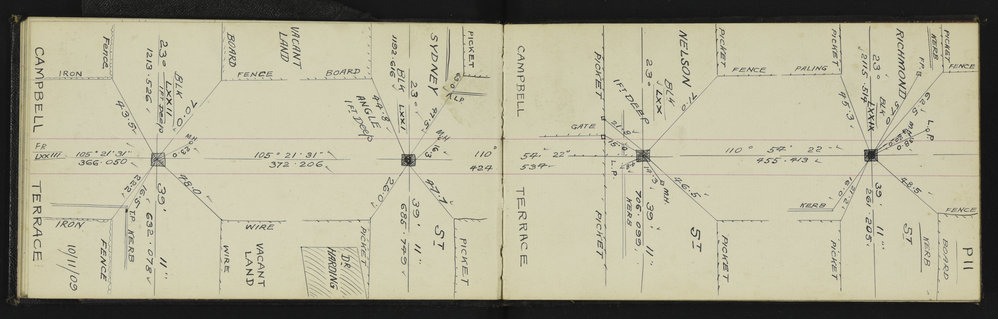 CAMPBELL TERRACE
Fence
IRON
23°
1213.526
BLK LXXII
1 FT Deep
BOARD
FENCE
VACANT LAND
BOARD
43.5
70.0
M.H.
23.0
FR LXXIII
105° 21' 31"
366.050
105° 21' 31"
372.206
22.2
16.5
48.0
T.P. KERB
39' 11"
632.078
IRON
FENCE
10/11/09
WIRE
WIRE
VACANT LAND
DR HARDING
PICKET
1192.616
23°
BLK LXXI
SYDNEY
ST
PICKET
L.P.
44.8
ANGLE
1 FT Deep
M.H.
16.3
110°
424
26.0
47.7
39' 11"
685.749
PICKET
CAMPBELL TERRACE
PICKET
1 FT DEEP
23°
BLK LXX
NELSON
ST
PICKET
FENCE
PALING
GATE
54' 22"
534
L.P.
KERB
M.H.
46.5
39' 11"
706.099
PICKET
PICKET
110° 54' 22"
455.413
PICKET
KERB
23°
1215.514
BLK LXXIX
RICHMOND
ST
F.P.B.
KERB
PICKET
FENCE
45.3
57.0
62.6
L.P.
M.H.
48.5
39' 11"
261.205
KERB
FENCE
BOARD
P11